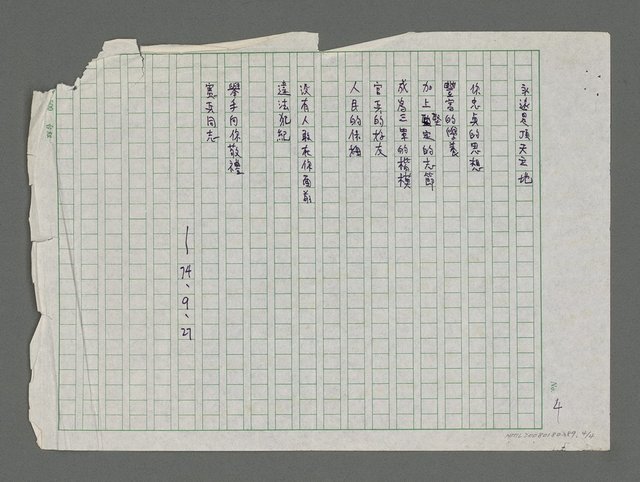 永遠是頂天立地
你忠貞的思想
豐富的學養
加上堅定的志節
成為三軍的楷模
官兵的好友
人民的保姆
沒有人敢在你面前
違法亂紀
舉手向你敬禮
憲兵同志
74、9、27
No. 4